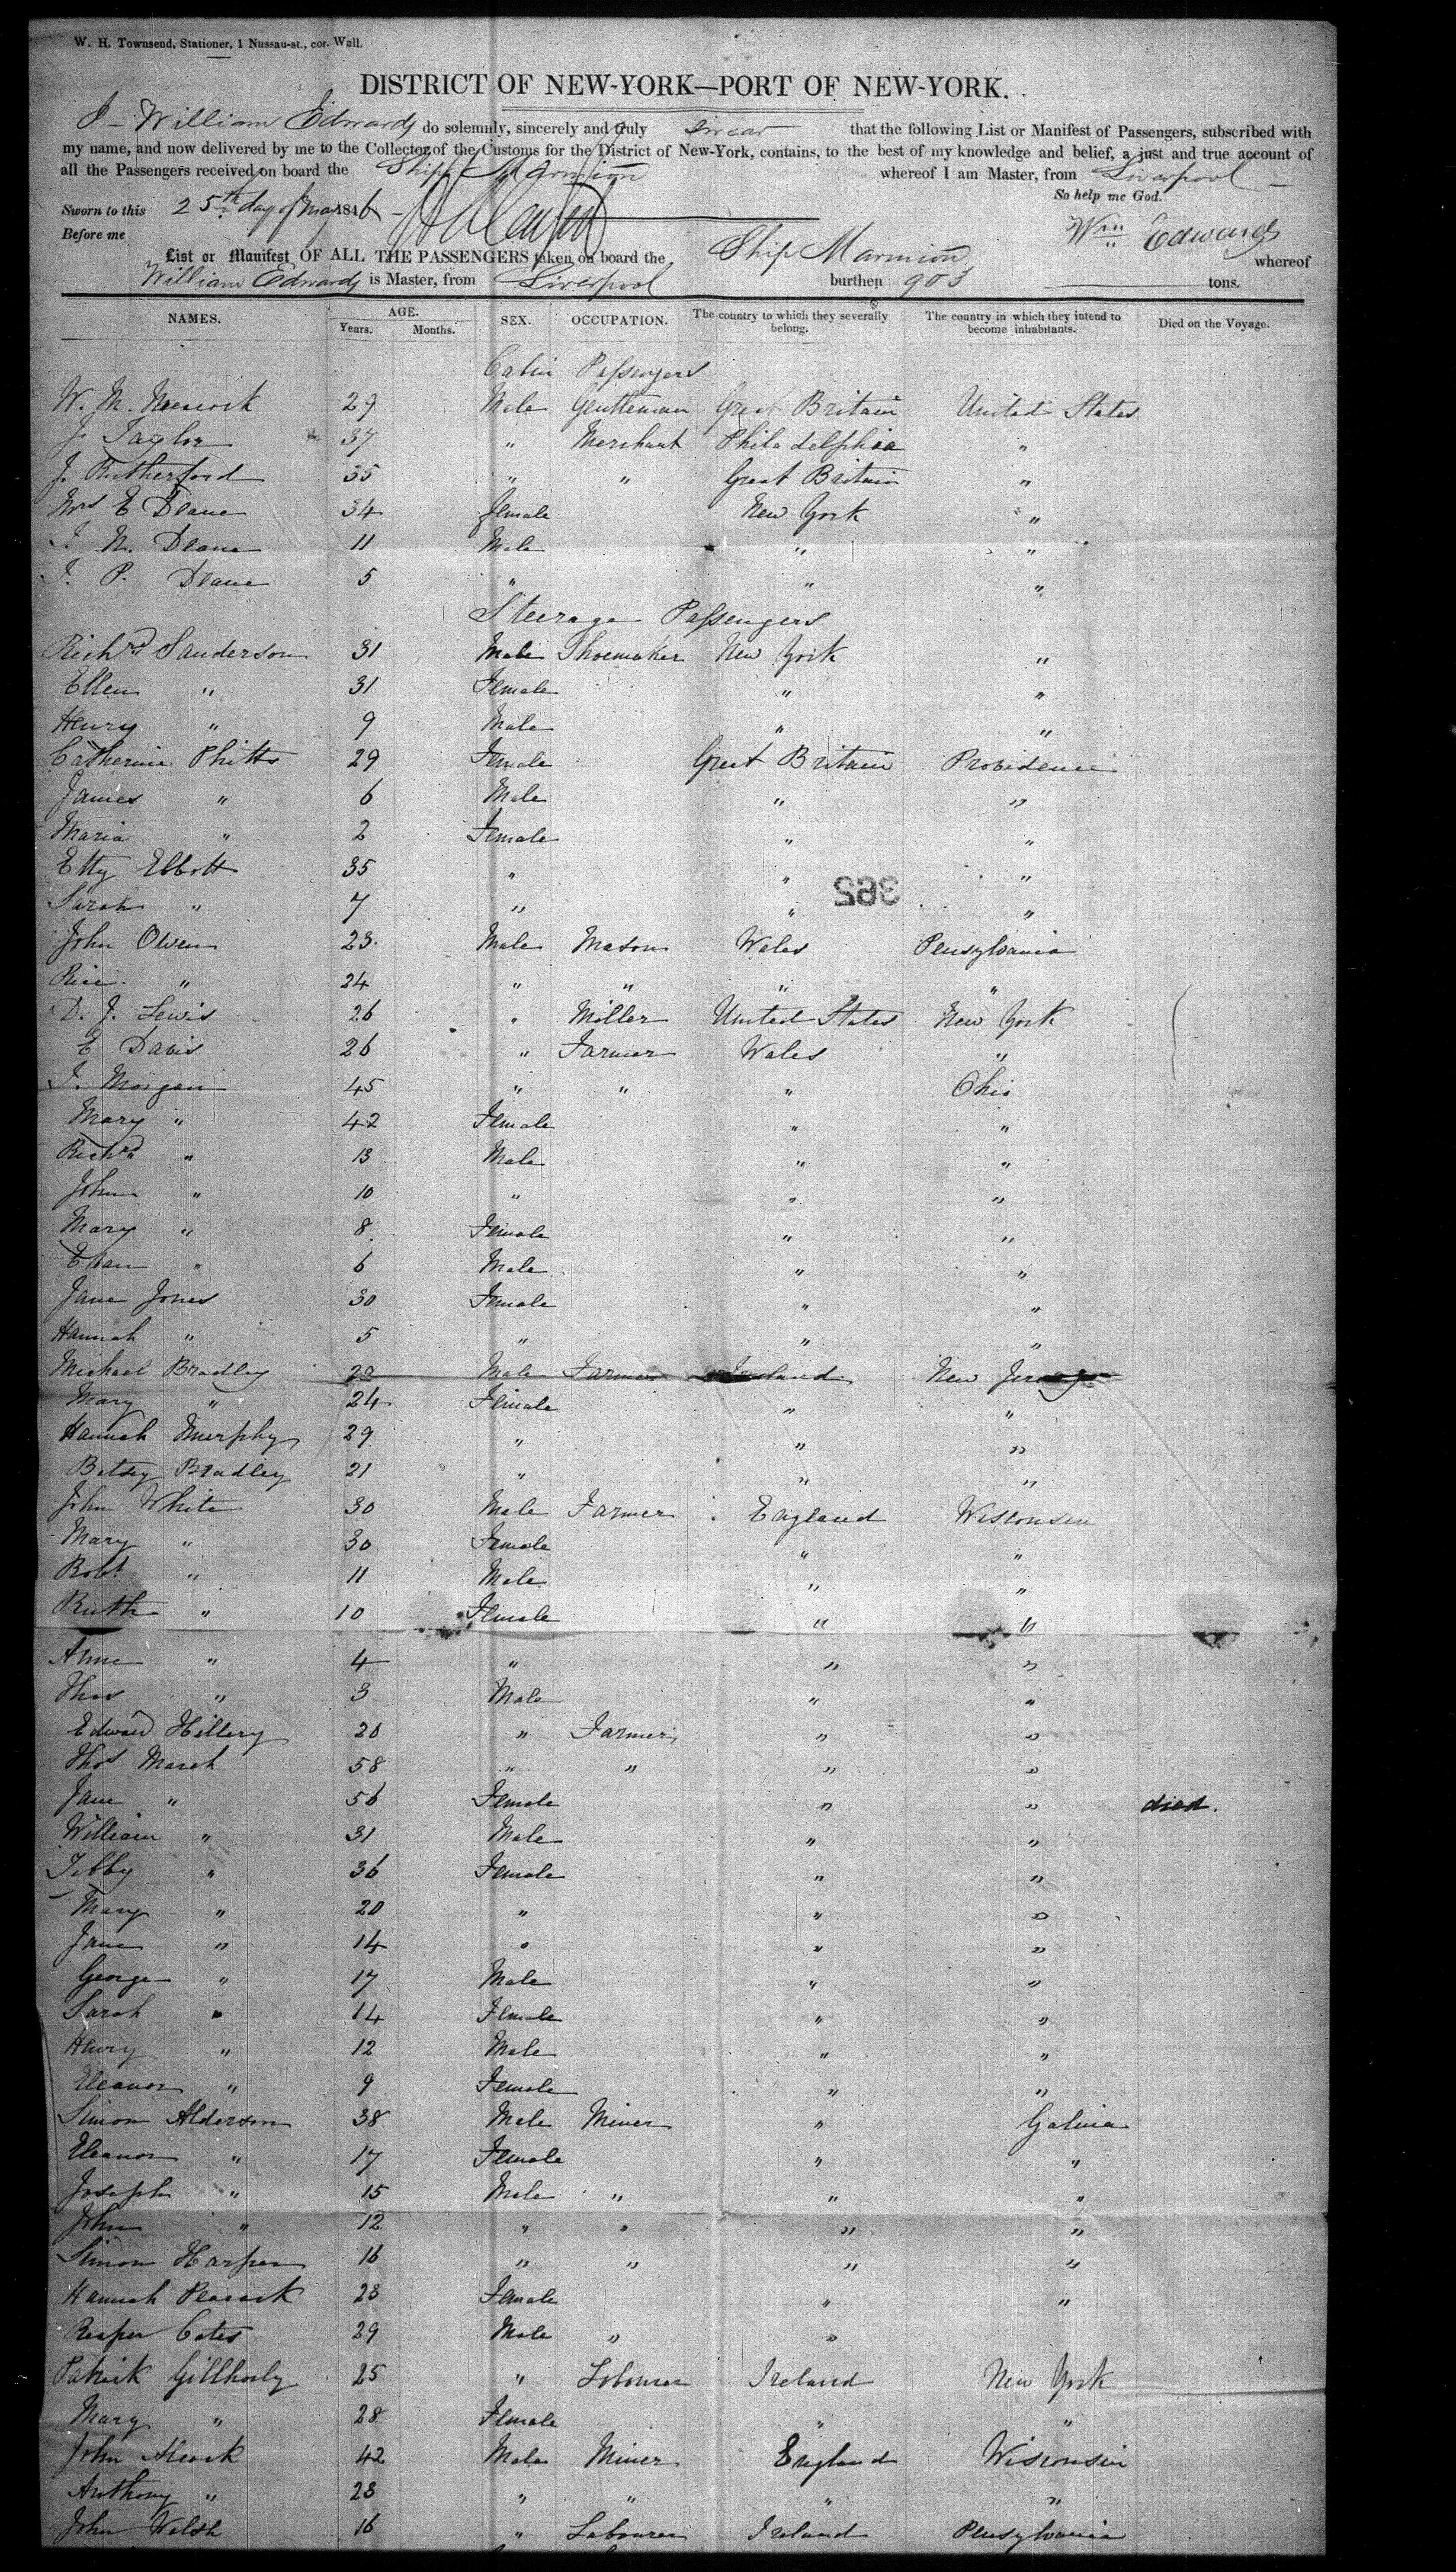 W. H. Townsend, Stationer, 1 Nassau-st., cor. Wall.
DISTRICT OF NEW-YORK—PORT OF NEW-YORK.
I - William Edwards do solemnly, sincerely and truly swear that the following List or Manifest of Passengers, subscribed with
my name, and now delivered by me to the Collector of the Customs for the District of New-York, contains, to the best of my knowledge and belief, a just and true account of
all the Passengers received on board the Ship Marmion whereof I am Master, from Liverpool
So help me God.
Sworn to this 25th day of May 1846
Before me
Wm Edwards
List or Manifest OF ALL THE PASSENGERS taken on board the Ship Marmion whereof
William Edwards is Master, from Liverpool burthen 903 tons.
NAMES. AGE. Years. Months. SEX. OCCUPATION. The country to which they severally belong. The country in which they intend to become inhabitants. Died on the Voyage.
Cabin Passengers
W. M. 29 Male Gentleman Great Britain United States
J. Taylor 37 " Merchant Philadelphia "
J. Rutherford 35 " " Great Britain "
Mrs E Deane 34 Female New York "
J. N. Deane 11 Male " "
J. P. Deane 5 " " "
Steerage Passengers
Richd Sanderson 31 Male Shoemaker New York "
Ellen " 31 Female " "
Henry " 9 Male " "
Catherine Phitts 29 Female Great Britain Providence
James " 6 Male " "
Maria " 2 Female " "
Etty Ebbott 35 " " "
365
Sarah " 7 " " "
John Owen 23 Male Mason Wales Pensylvania
Rice " 24 " " " "
D. J. Lewis 26 " Miller United States New York
E Davis 26 " Farmer Wales "
J. Morgan 45 " " " Ohio
Mary " 42 Female " "
Richd " 13 Male " "
John " 10 " " "
Mary " 8 Female " "
Evan " 6 Male " "
Jane Jones 30 Female " "
Hannah " 5 " " "
Michael Bradley Male Farmer Ireland New Jersey
Mary " 24 Female " "
Hannah Murphy 29 " " "
Betsey Bradley 21 " " "
John White 30 Male Farmer England Wisconsin
Mary " 30 Female " "
Robt " 11 Male " "
Ruth " 10 Female " "
Anne " 4 " " "
Thos " 3 Male " "
Edward Hillery 20 " Farmer " "
Thos Marsh 58 " " " "
Jane " 56 Female " " died.
William " 31 Male " "
Tibby " 36 Female " "
Mary " 20 " " "
Jane " 14 " " "
George " 17 Male " "
Sarah " 14 Female " "
Henry " 12 Male " "
Eleanor " 9 Female " "
Simon Alderson 38 Male Miner " Galina
Eleanor " 17 Female " "
Joseph " 15 Male " " "
John " 12 " " " "
Simon Harper 16 " " " "
Hannah Peacock 23 Female " "
Cates 29 Male " "
Patrick 25 " Labourer Ireland New York
Mary " 28 Female " "
John Alcock 42 Male Miner England Wisconsin
Anthony " 23 " " " "
John Welsh 16 " Labourer Ireland Pensylvania